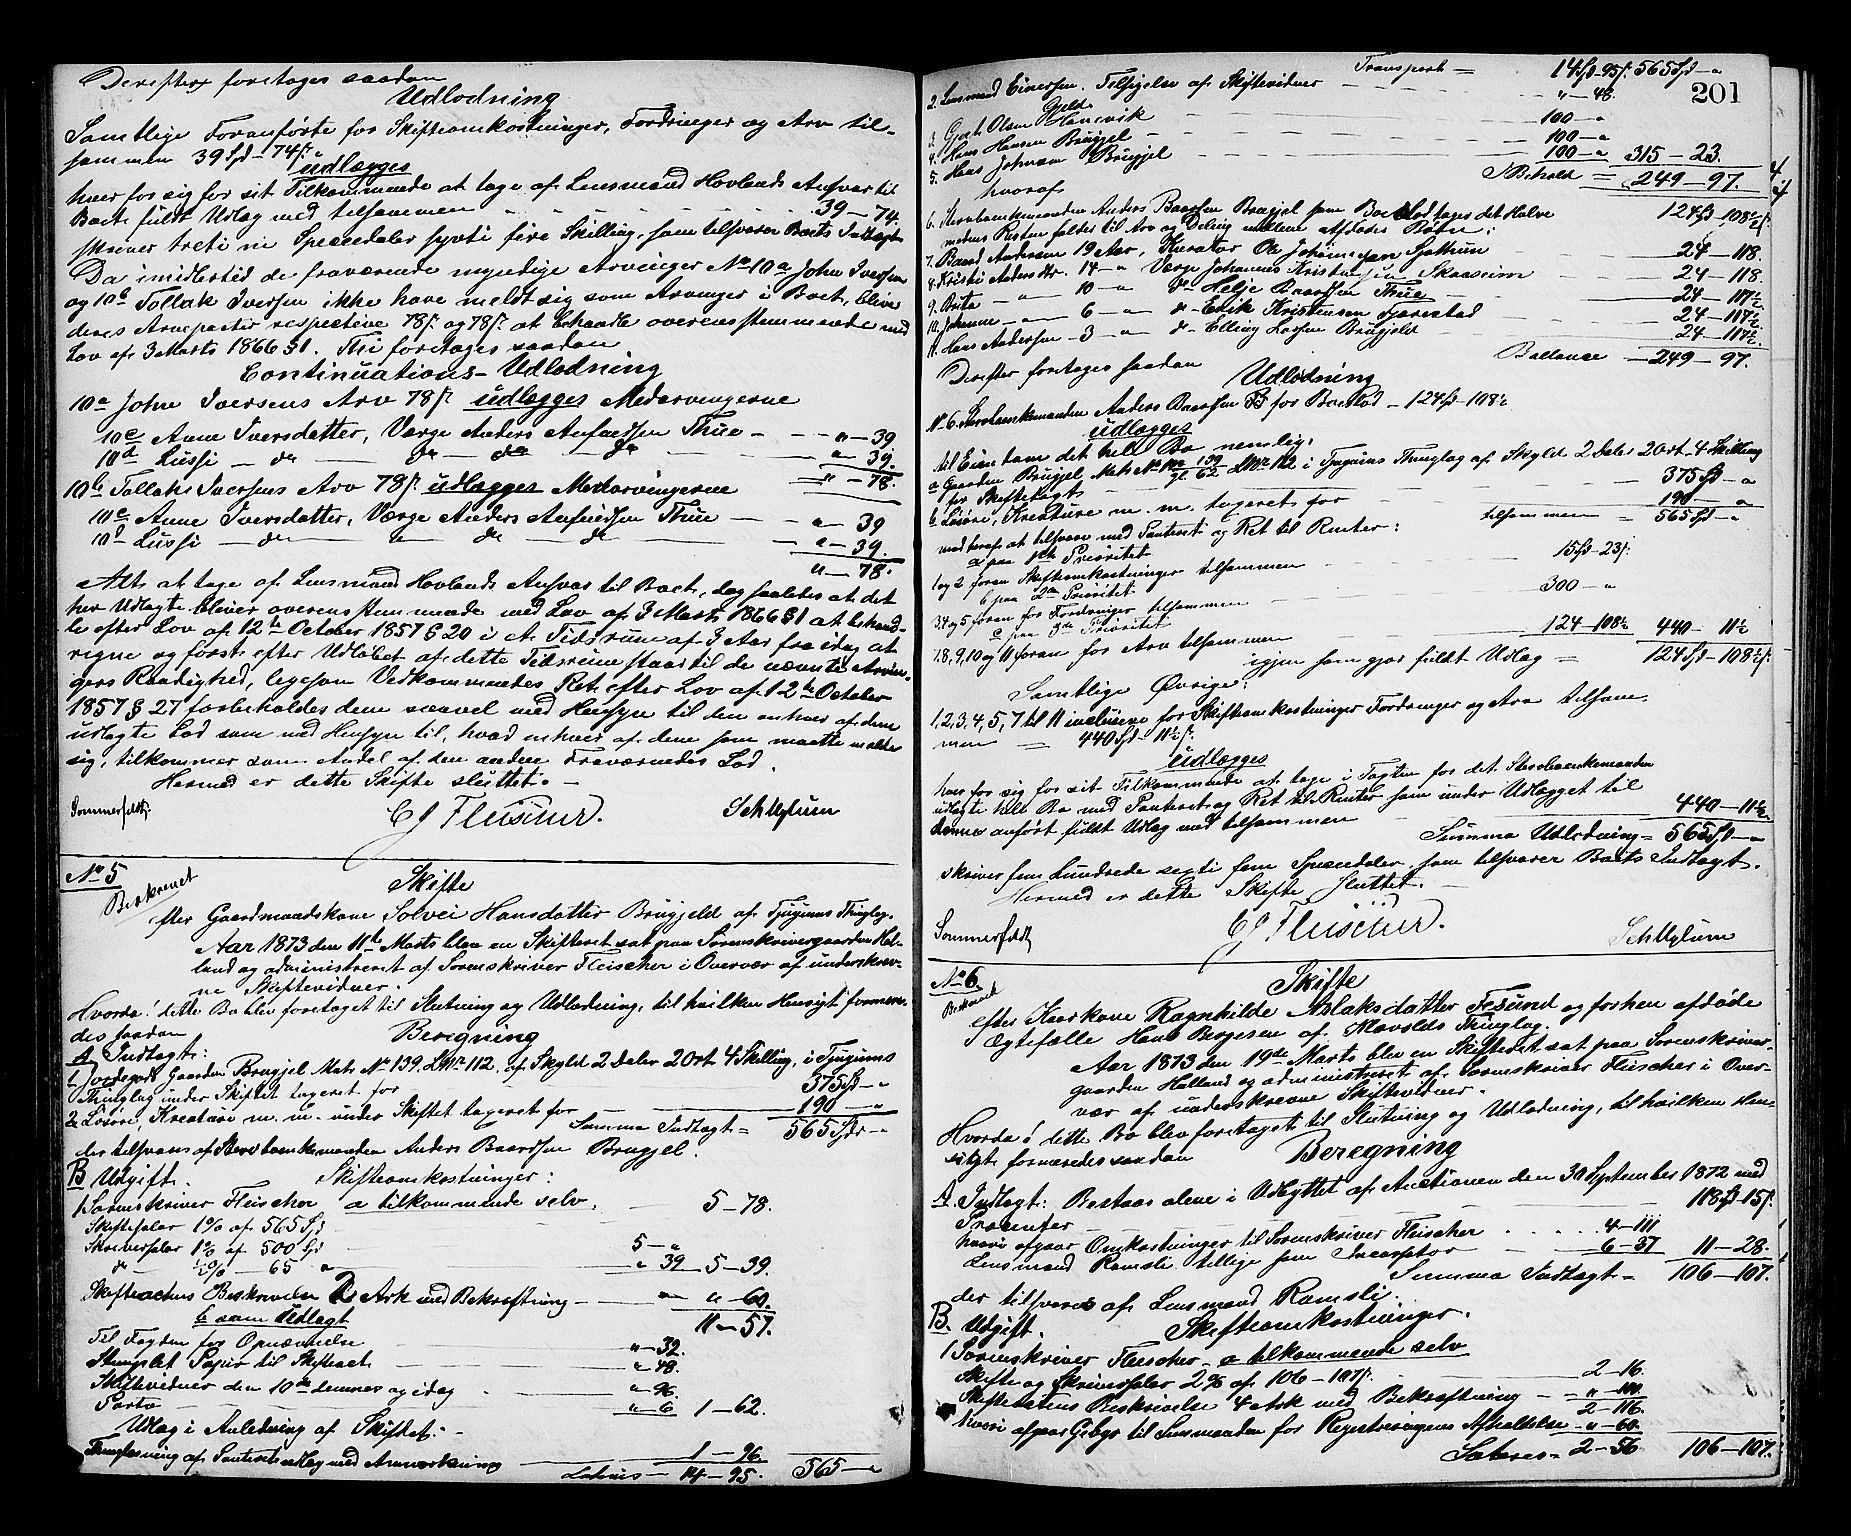 Derefter foretages saadan
Udlodning
Samtlige Foranførte for Skifteomkostninger, Fordringer og Arv til-
sammen 39 Spd - 74 s.
udlægges
hver for sig for sit Tilkommende at tage af Lensmand Hovlands Ansvar til
Boet fuldt Udlæg med tilsammen 39 - 74.
skriver treti ni Speciedaler sytti fire Skilling, som tilsvarer Boets Indtægt
Da imidlertid de fraværende myndige Arvinger No 10 a John Iversen
og 10 b Tollak Iversen ikke have meldt sig som Arvinger i Boet, blive
deres Arveparter respective 78 s. og 78 s. at behandle overensstemmende med
Lov af 3 Marts 1866 § 1. Thi foretages saadan
Continuations-Udlodning
10 a John Iversens Arv 78 s. udlægges Medarvingerne
10 c Anne Iversdatter, Værge Anders Anfindsen Thue - " - 39
10 d Lussi - do - do - do - do " - 39.
" - 78.
10 b Tollak Iversens Arv 78 s. udlægges Medarvingerne
10 c Anne Iversdatter, Værge Anders Anfindsen Thue - " - 39
10 d Lussi - do - " - do - do - " - 39.
" - 78.
Alt at tage af Lensmand Hovlands Ansvar til Boet, dog saaledes at det
her Udlagte bliver overensstemmende med Lov af 3 Marts 1866 § 1 at behand-
le efter Lov af 12te October 1857 § 20 i et Tidsrum af 3 Aar fra idag at
regne og først efter Udløbet af dette Tidsrum staar til de nævnte Arvin-
gers Raadighed, ligesom Vedkommendes Ret efter Lov af 12te October
1857 § 27 forbeholdes dem saavel med Hensyn til den enhver af dem
udlagte Lod som med Hensyn til, hvad enhver af dem som maatte melde
sig, tilkommer som Andel af den anden Fraværendes Lod.
Hermed er dette Skifte sluttet. -
Sommerfeldt CJ Fleischer. S Utylum
No 5
Beskrevet
Skifte
efter Gaardmandskone Solvei Hansdatter Brugjeld af Tjugums Thinglag.
Aar 1873 den 11te Marts blev en Skifteret sat paa Sorenskrivergaarden Hol-
land og administreret af Sorenskriver Fleischer i Overvær af underskrev-
ne Skiftevidner.
Hvorda! dette Bo blev foretaget til Slutning og Udlodning, til hvilken Hensigt formere-
des saadan
Beregning
A. Indtægt:
1. Jordegods Gaarden Brugjel Mat: No 139, LNr 112, af Skyld 2 Daler 2 Ort 4 Skilling, i Tjugums
Thinglag under Skiftet taxeret for 375 Spd - "
2. Løsøre, Kreature m. m. under Skiftet taxeret for 190 - "
Summa Indtægt = 565 Spd - "
der tilsvares af Stervboenkemanden Anders Baardsen Brugjel.
B. Udgift. Skifteomkostninger:
1. Sorenskriver Fleischer a tilkommende selv. 5 - 78.
Skiftesalær 1 % af 565 Spd
Skriversalær 1 % af 500 Spd 5 - "
do ½ % - 65 " " 39 5 - 39.
Skifteactens Beskrivelse 2 Ark med Bekræftning - " - 60.
11 - 57.
b som Udlagt
Til Fogden for Opnævnelse " - 32.
Stemplet Papir til Skifteact " - 48.
Skiftevidner den 10de dennes og idag " - 96
Porto " - 6 1 - 62.
Udlæg i Anledning af Skiftet: -
Thinglæsning af Panteretsudlæg med Anmærkning 1 - 96.
Lateris - 14 - 95. 565 - "
201
Transport = 14 Spd - 95 s. 565 Spd - "
2. Lensmand Einersen. Tilsigelse af Skiftevidner " - 48.
Gjeld
3. Gjert Olsen Hamrvik 100 - "
4. Hans Hansen Brugjel 100 - "
5. Hans Johnsen Brugjel 100 - " 315 - 23.
I Behold = 249 - 97.
hvoraf
6. Stervboenkemanden Anders Baardsen Brugjel som Boeslod tages det Halve 124 Spd - 108½ s.
medens Resten faldes til Arv og Deling mellem afdødes Børn:
7. Baard Andersen 19 Aar, Kurator Ole Johannesen Sjøtun 24 - 118.
8. Kristi Andersdtr. 14 - " Værge Johannes Kristensen Skaaseim 24 - 118
9. Brita - " 10 - " do Helje Baardsen Thue 24 - 117½
10. Johanne - " 6 - " do Erik Kristensen Farestad 24 - 117½
11. Hans Andersen - 3 - " do Elling Larsen Brugjeld 24 - 117½.
Ballance - 249 - 97.
Derefter foretages saadan
Udlodning
No 6. Stervboenkemanden Anders Baardsen B for Boeslod - 124 Spd - 108½
udlægges
til Eiendom det hele Bo nemlig:
a Gaarden Brugjel, Mat: No 139 LNr 112 i Tjugums Thinglag af Skyld 2 Daler 2 Ort 4 Skilling
for Skiftetaxt 375 Spd - "
b Løsøre, Kreature m. m. taxeret for 190 - "
tilsammen = 565 Spd - "
mod heraf at tilsvare med Panteret og Ret til Renter:
a paa 1ste Prioritet
1 og 2 foran Skifteomkostninger tilsammen 15 Spd - 23 s.
b paa 2den Prioritet
3, 4 og 5 foran for Fordringer tilsammen 300 - "
c paa 3die Prioritet
7, 8, 9, 10 og 11 foran for Arv tilsammen 124 - 108½ 440 - 11½
igjen som gjør fuldt Udlæg = 124 Spd - 108½ s.
Samtlige Øvrige:
1, 2, 3, 4, 5, 7 til 11 inclusive for Skifteomkostninger Fordringer og Arv tilsam-
men = 440 Spd - 11½ s.
udlægges
hver for sig for sit Tilkommende at tage i Taxten for det Stervboenkemanden
udlagte hele Bo med Panteret og Ret til Renter som under Udlægget til
denne anført fuldt Udlæg med tilsammen 440 - 11½
Summa Udlodning = 565 Spd - "
skriver fem Hundrede sexti fem Speciedaler, som tilsvarer Boets Indtægt.
Hermed er dette Skifte sluttet. -
Sommerfeldt CJ Fleischer. S Utylum
No 6
Beskrevet
Skifte
efter Kaarkone Ragnhilde Aslaksdatter Fesund og forhen afdøde
Ægtefælle Hans Børgesen af Mavolds Thinglag.
Aar 1873 den 19de Marts blev en Skifteret sat paa Sorenskriver-
gaarden Holland og administreret af Sorenskriver Fleischer i Over-
vær af underskrevne Skiftevidner.
Hvorda! dette Bo blev foretaget til Slutning og Udlodning, til hvilken Hen-
sigt formeredes saadan
Beregning
A. Indtægt: Bestaar alene i Udbyttet af Auctionen den 30 September 1872 med 118 Spd - 15 s.
Procenter
hvori afgaar Omkostninger til Sorenskriver Fleischer 4 - 111
Lensmand Ramsli tillige som Incassator 6 - 37 11 - 28.
Summa Indtægt - 106 - 107.
der tilsvares af Lensmand Ramsli.
B. Udgift. Skifteomkostninger.
1 Sorenskriver Fleischer a tilkommende selv
Skifte og Skriversalær 2 % af 106 - 107 s. 2 - 16.
Skifteactens Beskrivelse 4 Ark med Bekræftning - " - 100.
2 - 116.
hvori afgaar Gebyr til Lensmanden for Registreringens Afholdelse - " - 60.
Lateris - 2 - 56 106 - 107.